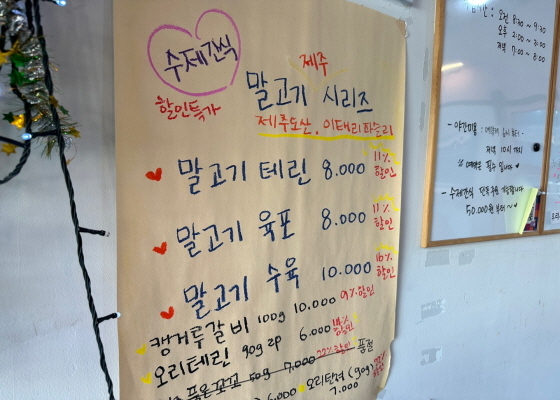 수제간식
할인특가
제주
말고기 시리즈
제주도산, 이태리파슬리
말고기 테린 8.000 11% 할인
말고기 육포 8.000 11% 할인
말고기 수육 10.000 16% 할인
캥거루갈비 100g 10.000 9% 할인
오리테린 90g 2P 6.000 할인
50g 7.000 22% 할인 품절
6.000 오리탄력 (90g)
7.000
오전 8:30 ~ 9:30
오후 2:00 ~ 3:00
저녁 7:00 ~ 8:00
저녁 10시 까지
필수 입니다
- 수제간식
50.000원 부터 ~